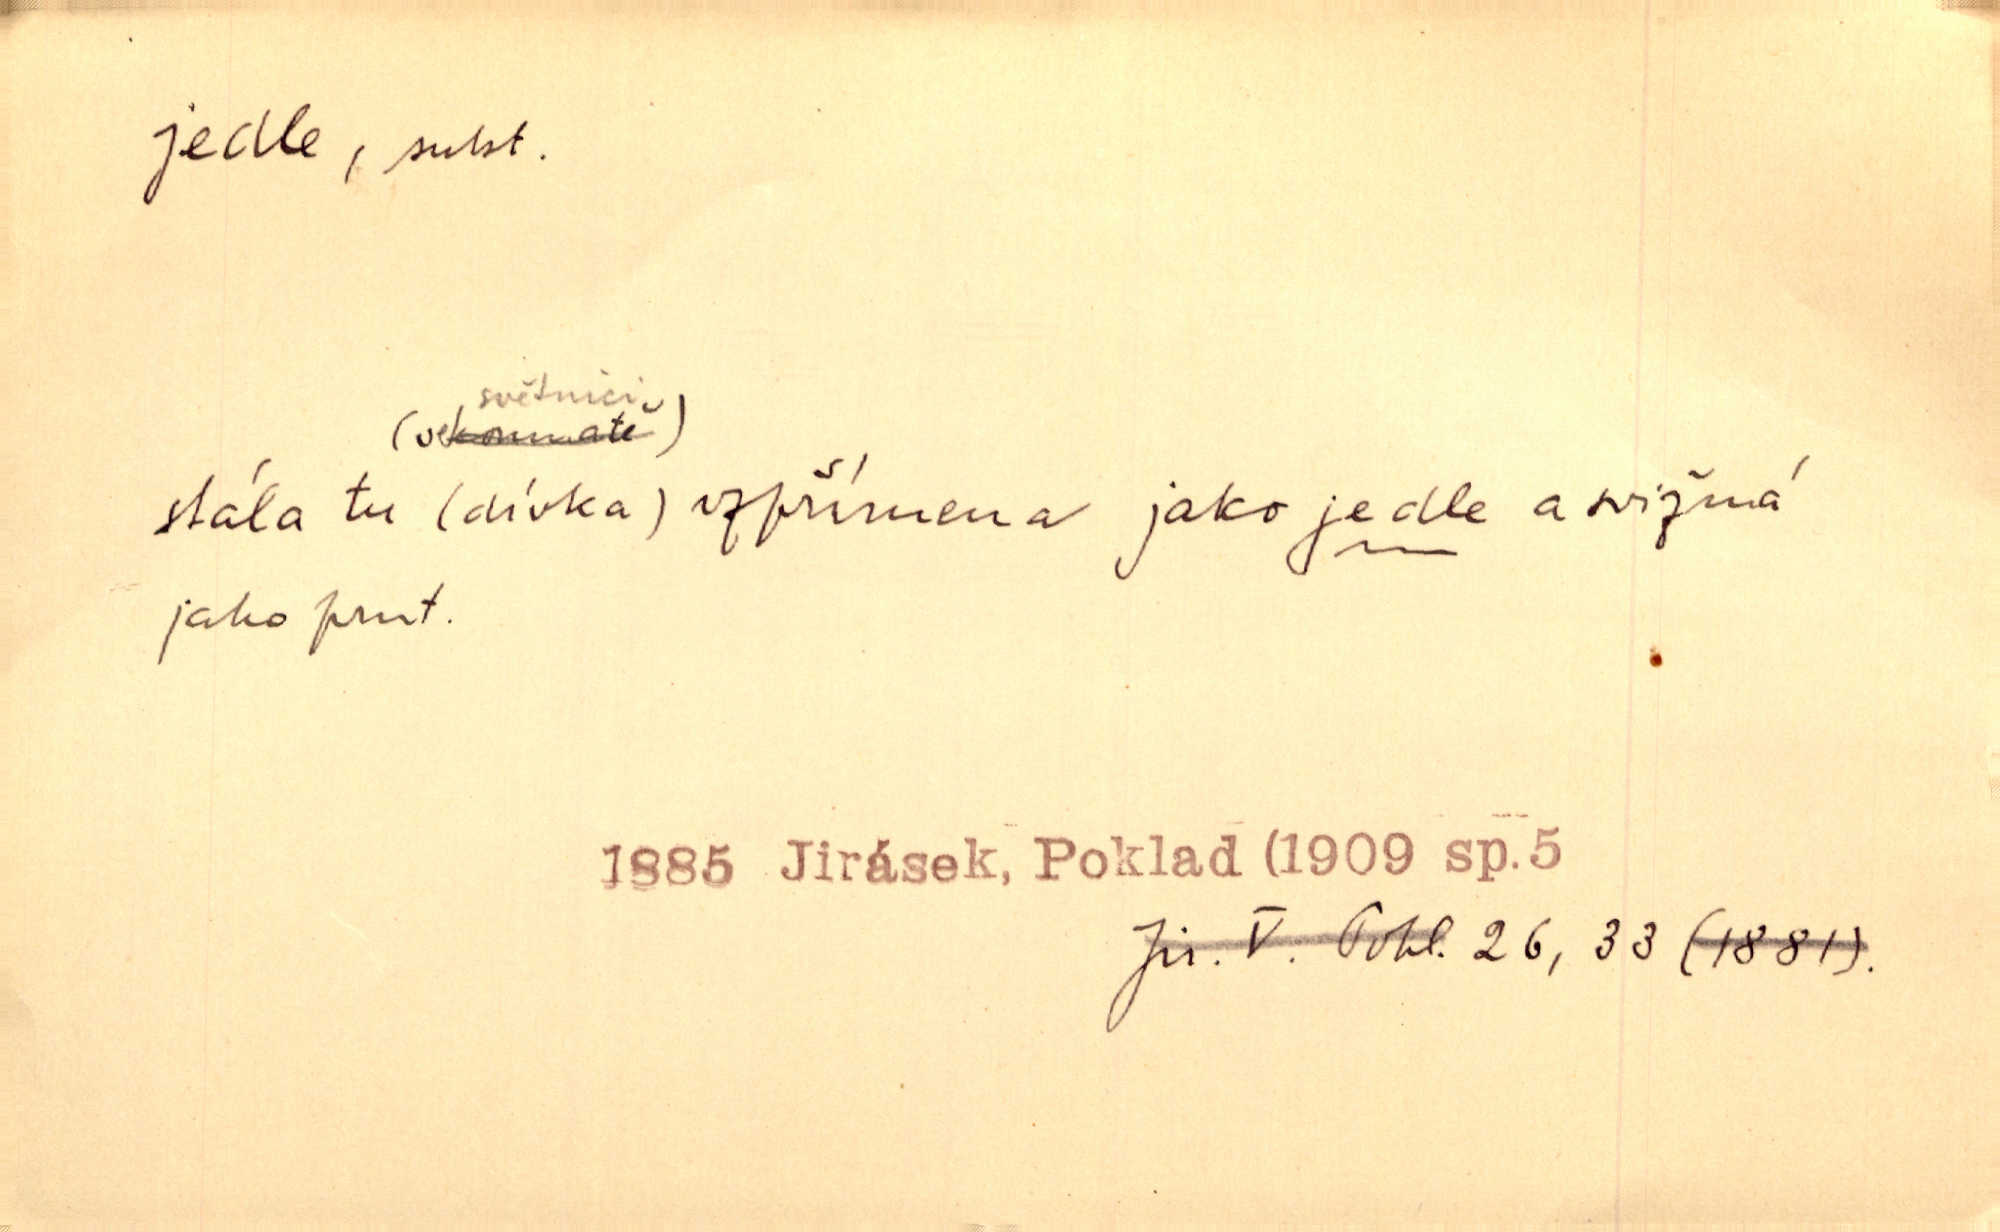 jedle, subst.
světnici
(ve komnatě)
stála tu (dívka) vzpřímena jako jedle a svižná
jako prut.
1885 Jirásek, Poklad (1909 sp.5
Jir. V. Pokl. 26, 33 (1881).